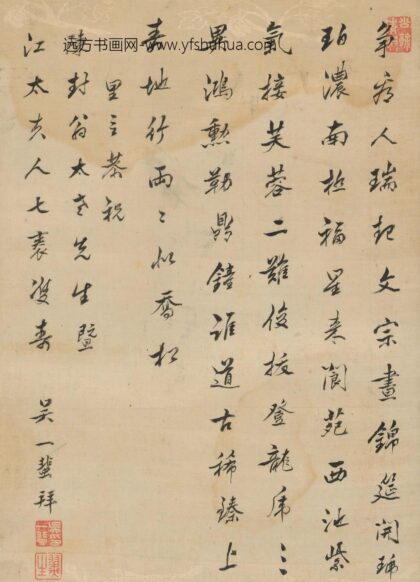 远方书画网:www.yfshuhua.com
爭看人瑞起文宗晝錦筵開琥
珀濃南極福星来閬苑西池紫
氣接芙蓉二難俊拔登龍虎三
異鴻勲勒鼎鐘誰道古稀臻上
壽地行兩〻似喬松
里言恭祝
封翁太老先生暨
江太夫人七袠雙壽 吳一蜚拜